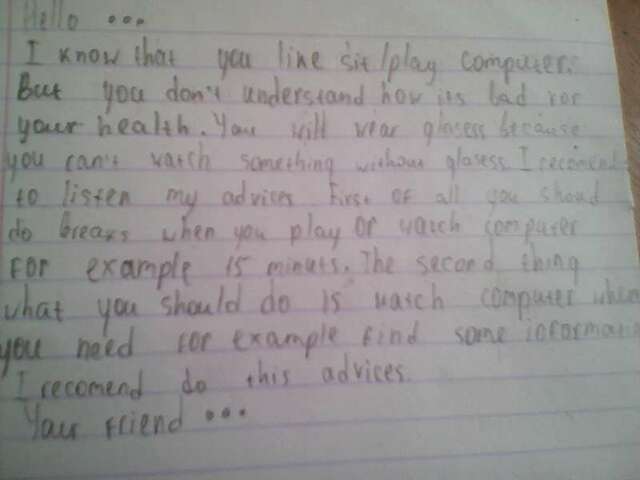 Hello ...
I know that you like sit/play computer.
But you don't understand how its bad for
your health. You will wear glasess because
you can't watch something without glasess. I recomend
to listen my advices. First of all you should
do breaks when you play or watch computer
For example 15 minuts. The second thing
what you should do is watch computer when
you need for example find some informati
I recomend do this advices.
Your friend ...